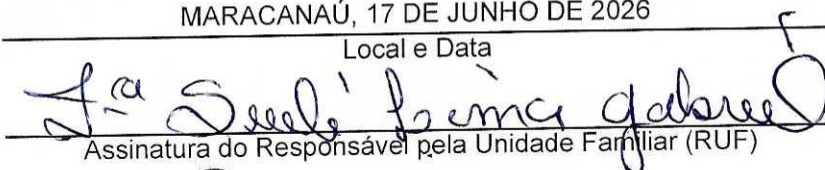 MARACANAÚ, 17 DE JUNHO DE 2026
Local e Data
Fª Sueli Lima Gabriel
Assinatura do Responsável pela Unidade Familiar (RUF)